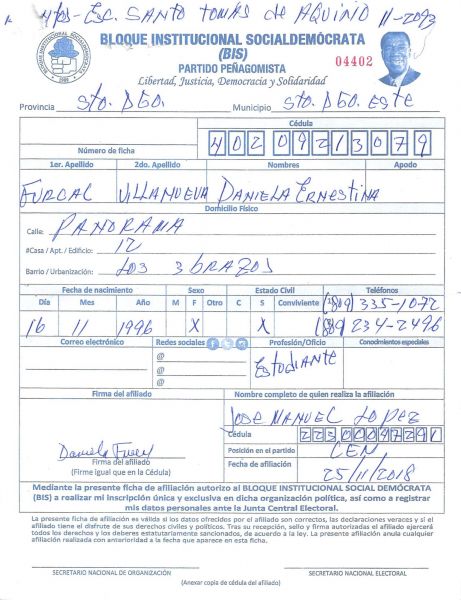 4/03- Esc. SANTO TOMÁS de AQUINO 11-2093
BLOQUE INSTITUCIONAL SOCIALDEMÓCRATA
(BIS)
PARTIDO PEÑAGOMISTA
04402
Libertad, Justicia, Democracia y Solidaridad
Provincia Sto. Dgo. Municipio Sto. Dgo. Este
Cédula
Número de ficha 40209213079
1er. Apellido 2do. Apellido Nombres Apodo
FURCAL VILLANUEVA DANIELA ERNESTINA
Domicilio Físico
Calle: PANORAMA
#Casa / Apt. / Edificio: 12
Barrio / Urbanización: LOS 3 BRAZOS
Fecha de nacimiento Sexo Estado Civil Teléfonos
Día Mes Año M F Otro C S Conviviente (809) 335-1072
16 11 1996 X X (809) 234-2496
Correo electrónico Redes sociales Profesión/Oficio Conocimientos especiales
@
@
@
Estudiante
Firma del afiliado Nombre completo de quien realiza la afiliación
JOSE MANUEL LOPEZ
Cédula 22300047291
Posición en el partido CEN
Fecha de afiliación 25/11/2018
Firma del afiliado
(Firma igual que en la Cédula)
Mediante la presente ficha de afiliación autorizo al BLOQUE INSTITUCIONAL SOCIAL DEMÓCRATA
(BIS) a realizar mi inscripción única y exclusiva en dicha organización política, así como a registrar
mis datos personales ante la Junta Central Electoral.
La presente ficha de afiliación es válida si los datos ofrecidos por el afiliado son correctos, las declaraciones veraces y si el
afiliado tiene el disfrute de sus derechos civiles y políticos. Tras su recepción, sello y firma autorizadas el afiliado ejercerá
todos los derechos y los deberes estatutariamente sancionados, de acuerdo a la ley. La presente afiliación anula cualquier
afiliación realizada con anterioridad a la fecha que aparece en esta ficha.
SECRETARIO NACIONAL DE ORGANIZACIÓN SECRETARIO NACIONAL ELECTORAL
(Anexar copia de cédula del afiliado)